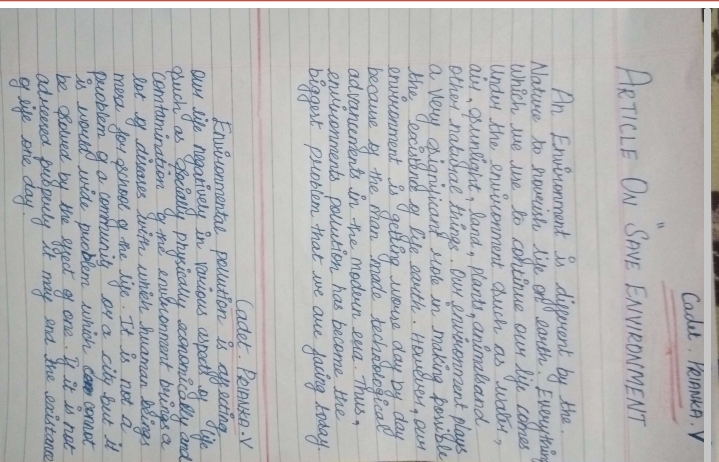 Cadet. PRIANKA. V
ARTICLE ON "SAVE ENVIRONMENT
An Environment is different by the.
Nature to nourish life on earth. Everything
which we use to continue our life comes
under the environment such as water,
air, sunlight, land, plants, animals and
other natural things. Our environment plays
a very significant role in making possible
the existence of life earth. However, our
environment is getting worse day by day
because of the man made technological
advancements in the modern era. Thus,
environments pollution has become the
biggest problem that we are facing today.
Cadet. PRIANKA. V
Environmental pollution is affecting
our life negatively in various aspect of life
such as socially physically economically and
Contamination of the environment brings a
lot of diseases with which human beings
mess for period of the life. It is not a
problem of a community or a city but it
is would wide problem which cannot
be solved by the effect of one. If it is not
adressed properly it may end the existance
of life one day.